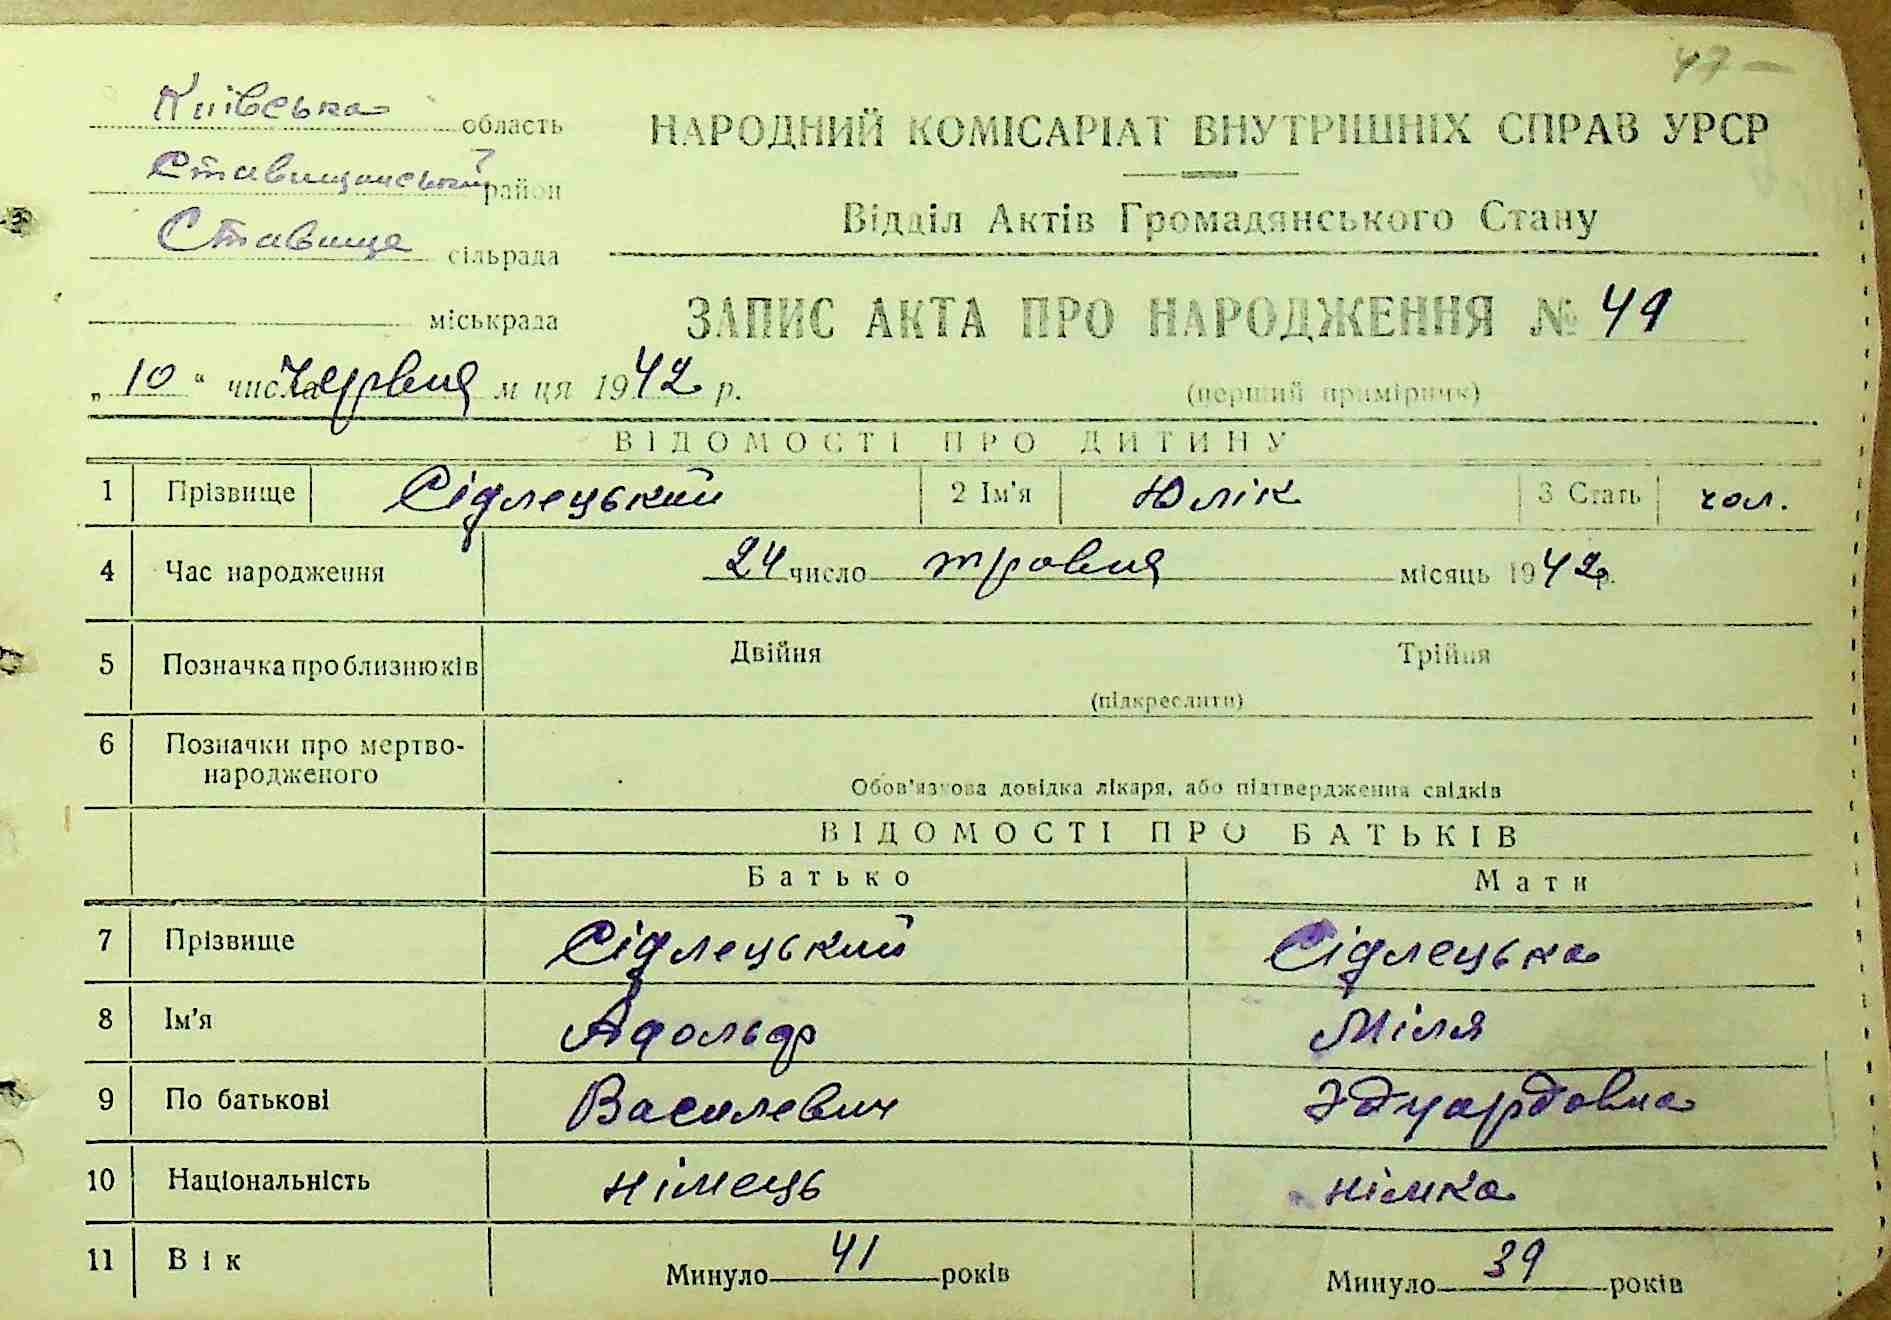 47 —
Київська область
Ставищанський район
Ставище сільрада
міськрада
НАРОДНИЙ КОМІСАРІАТ ВНУТРІШНІХ СПРАВ УРСР
Відділ Актів Громадянського Стану
ЗАПИС АКТА ПРО НАРОДЖЕННЯ № 49
„ 10 “ числа Червня м ця 1942 р.
(перший примірник)
ВІДОМОСТІ ПРО ДИТИНУ
1 Прізвище Сідлецький 2 Ім'я Юлік 3 Стать чол.
4 Час народження 24 число травня місяць 1942 р.
5 Позначка про близнюків Двійня Трійня
(підкреслити)
6 Позначки про мертво-
народженого
Обов'язкова довідка лікаря, або підтвердження свідків
ВІДОМОСТІ ПРО БАТЬКІВ
Батько Мати
7 Прізвище Сідлецький Сідлецька
8 Ім'я Адольф Міля
9 По батькові Василевич Эдуардовна
10 Національність німець німка
11 Вік Минуло 41 років Минуло 39 років